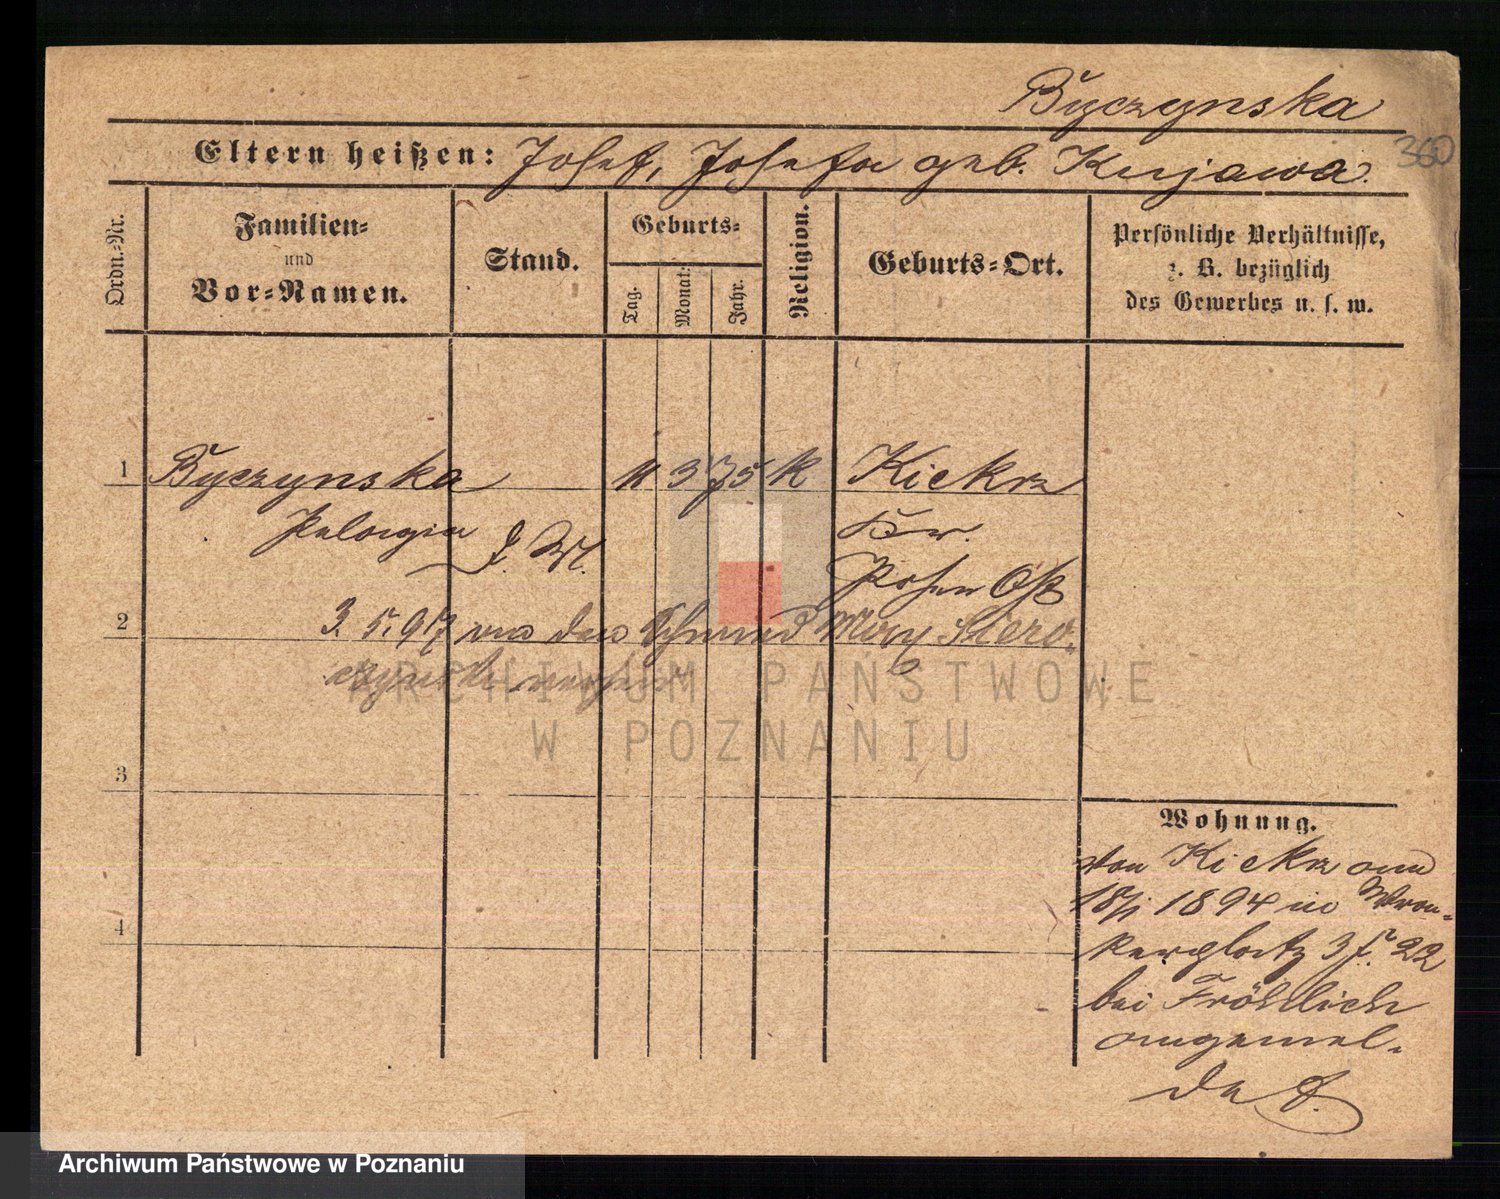 Byczynska
360
Eltern heißen: Josef, Josefa geb. Kujawa.
Ordn.-Nr.
Familien- und Vor-Namen.
Stand.
Geburts-
Tag.
Monat:
Jahr.
Religion.
Geburts-Ort.
Persönliche Verhältnisse,
z. B. bezüglich
des Gewerbes u. s. w.
1 Byczynska 11 3 75 K Kiekrz
Pelagia d. M. Kr.
Posen Ost
2 3. 5. 97 den Schmied
3
4
Wohnung.
Von Kiekrz am
18/1 1894 in Wron-
kerplatz 3 f. 22
bei Fröhlich
angemel-
det.
ARCHIWUM PAŃSTWOWE
W POZNANIU
Archiwum Państwowe w Poznaniu